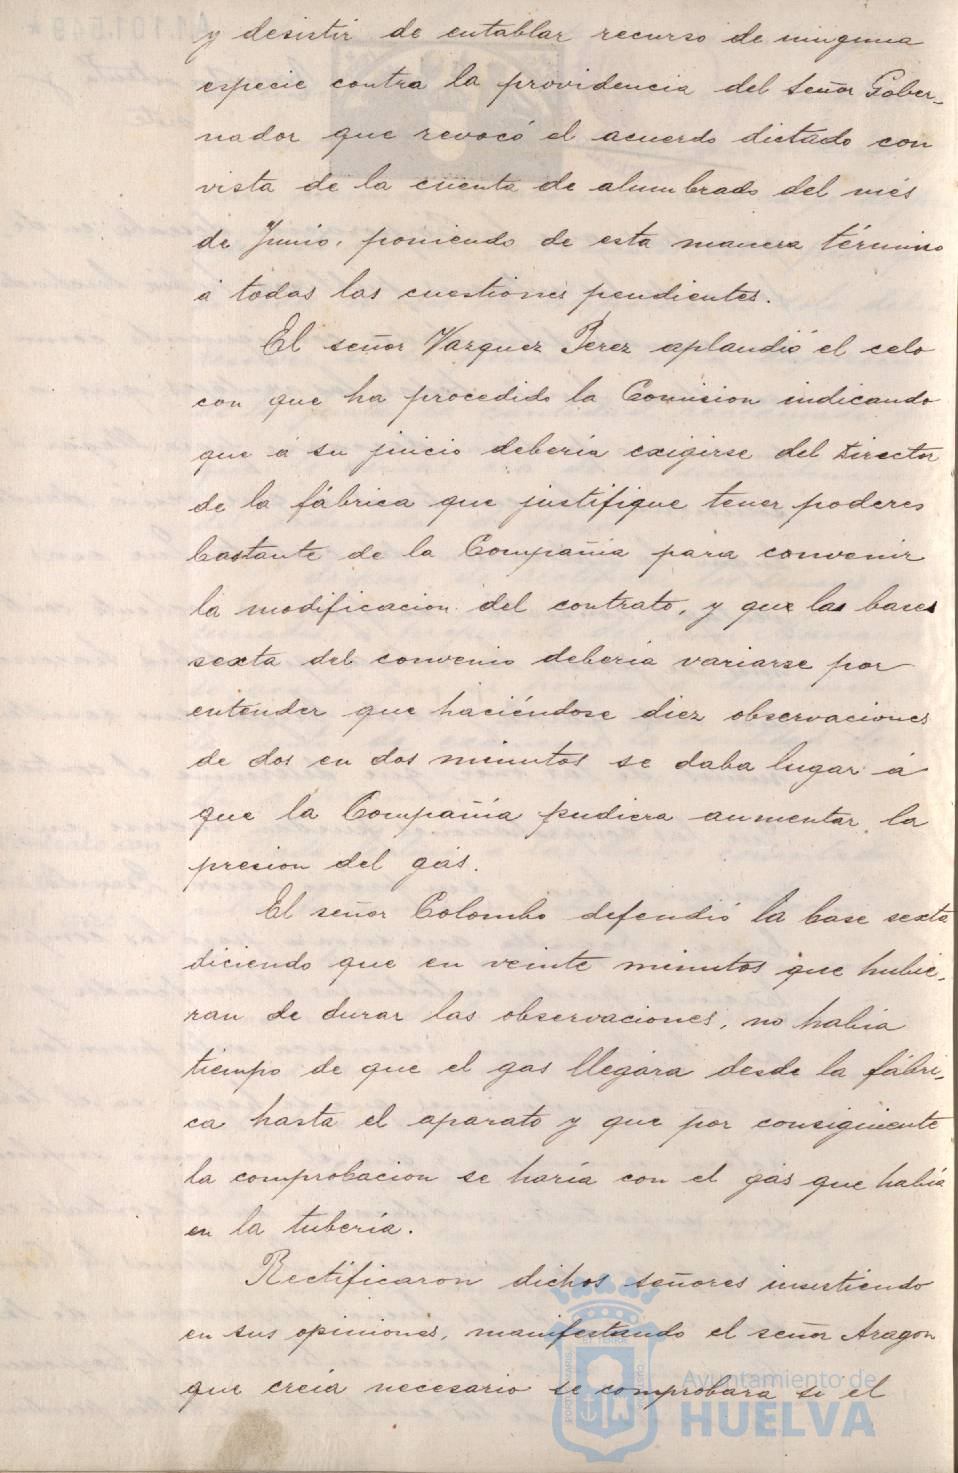 y desistir de entablar recurso de ninguna
especie contra la providencia del señor Gober-
nador que revocó el acuerdo dictado con
vista de la cuenta de alumbrado del més
de Junio, poniendo de esta manera término
á todas las cuestiones pendientes.
El señor Vazquez Perez aplaudió el celo
con que ha procedido la Comision indicando
que á su juicio debería exigirse del Director
de la fábrica que justifique tener poderes
bastante de la Compañia para convenir
la modificacion del contrato, y que las bases
sexta del convenio deberia variarse por
entender que haciéndose diez observaciones
de dos en dos minutos se daba lugar á
que la Compañía pudiera aumentar la
presion del gás.
El señor Colombo defendió la base sexta
diciendo que en veinte minutos que hubie-
ran de durar las observaciones, no habia
tiempo de que el gas llegára desde la fábri-
ca hasta el aparato y que por consiguiente
la comprobacion se haría con el gás que había
en la tubería.
Rectificaron dichos señores insistiendo
en sus opiniones, manifestando el señor Aragon
que creia necesario se comprobara si el
Ayuntamiento de
HUELVA